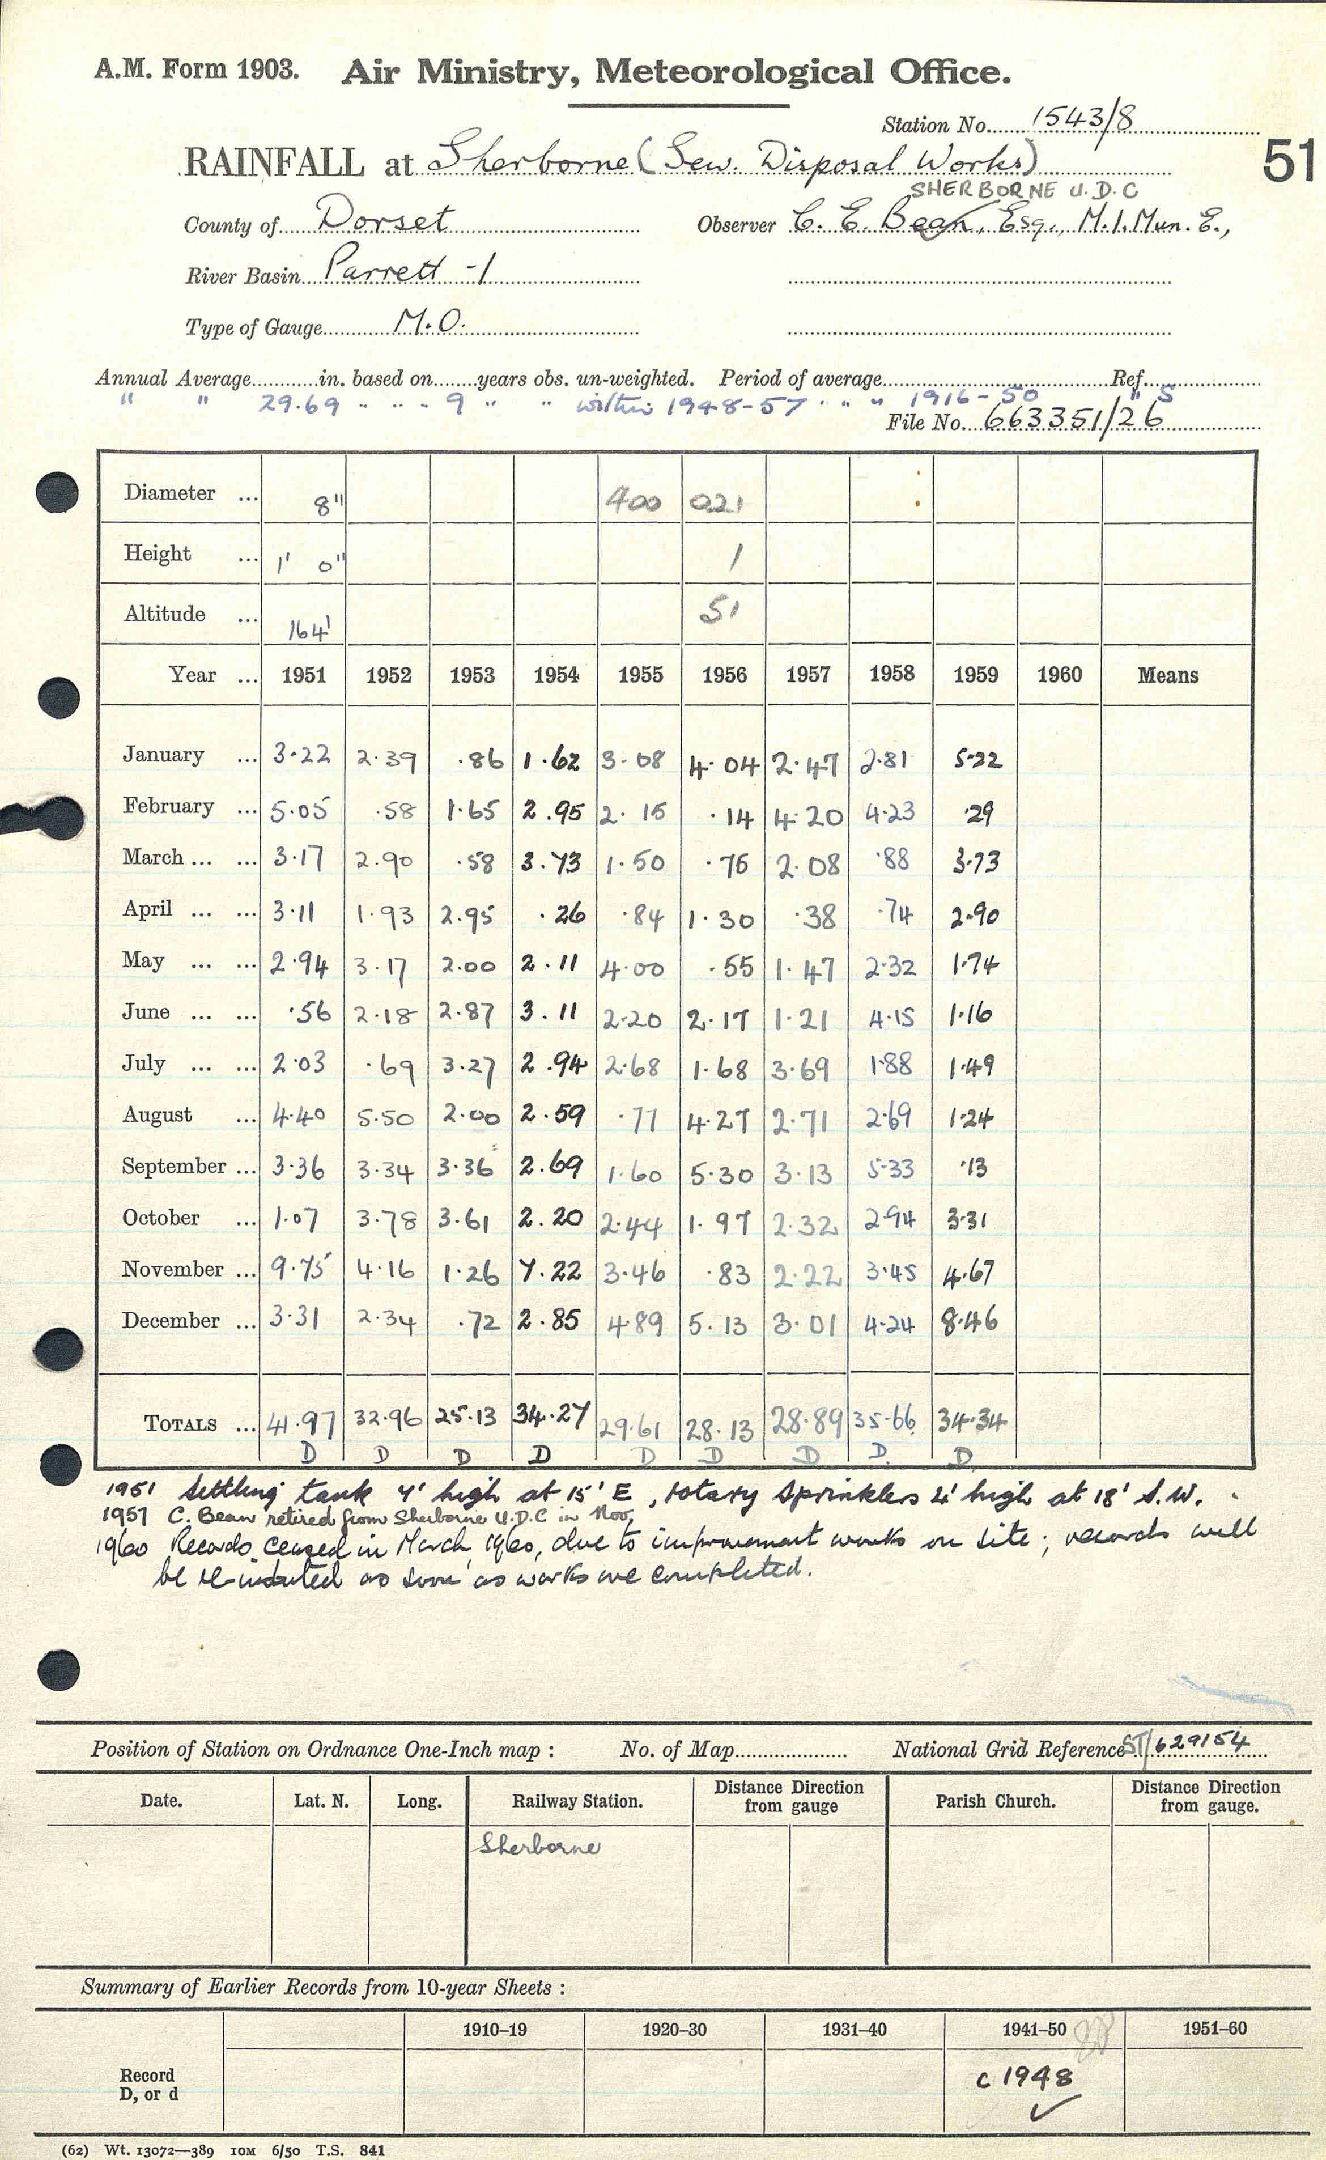 A.M. Form 1903. Air Ministry, Meteorological Office.
Station No. 1543/8
RAINFALL at Sherborne (Sew. Disposal Works)
51
SHERBORNE U.D.C
County of Dorset Observer C. E. Bean, Esq., M.I.Mun.E.,
River Basin Parrett -1
Type of Gauge M.O.
Annual Average in. based on years obs. un-weighted. Period of average Ref.
" " 29.69 " " " 9 " " within 1948-57 " " " 1916-50 " S
File No. 663351/26
Diameter ... 8" 400 021
Height ... 1' 0" 1
Altitude ... 164' 51
Year ... 1951 1952 1953 1954 1955 1956 1957 1958 1959 1960 Means
January ... 3.22 2.39 .86 1.62 3.08 4.04 2.47 2.81 5.22
February ... 5.05 .58 1.65 2.95 2.15 .14 4.20 4.23 .29
March ... ... 3.17 2.90 .58 3.73 1.50 .76 2.08 .88 3.73
April ... ... 3.11 1.93 2.95 .26 .84 1.30 .38 .74 2.90
May ... ... 2.94 3.17 2.00 2.11 4.00 .55 1.47 2.32 1.74
June ... ... .56 2.18 2.87 3.11 2.20 2.17 1.21 4.15 1.16
July ... ... 2.03 .69 3.27 2.94 2.68 1.68 3.69 1.88 1.49
August ... 4.40 5.50 2.00 2.59 .77 4.27 2.71 2.69 1.24
September ... 3.36 3.34 3.36 2.69 1.60 5.30 3.13 5.33 .13
October ... 1.07 3.78 3.61 2.20 2.44 1.97 2.32 2.94 3.31
November ... 9.75 4.16 1.26 7.22 3.46 .83 2.22 3.45 4.67
December ... 3.31 2.34 .72 2.85 4.89 5.13 3.01 4.24 8.46
TOTALS ... 41.97 32.96 25.13 34.27 29.61 28.13 28.89 35.66 34.34
D D D D D D D D D
1951 Settling tank 7' high at 15' E, rotary sprinklers 4' high at 18' S.W.
1957 C. Bean retired from Sherborne U.D.C in Nov,
1960 Records ceased in March, 1960, due to improvement works on site; records will
be re-instated as soon as works are completed.
Position of Station on Ordnance One-Inch map : No. of Map National Grid Reference ST/629154
Date. Lat. N. Long. Railway Station. Distance from gauge Direction Parish Church. Distance from gauge. Direction
Sherborne
Summary of Earlier Records from 10-year Sheets :
1910–19 1920–30 1931–40 1941–50 1951–60
Record D, or d
c 1948 ✓
(62) Wt. 13072—389 10M 6/50 T.S. 841